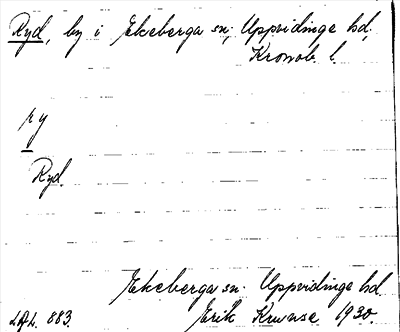 Ryd, by i Ekeberga sn, Uppvidinge hd,
Kronob. l.
ry
Ryd.
Ekeberga sn. Uppvidinge hd.
883. Erik 1930